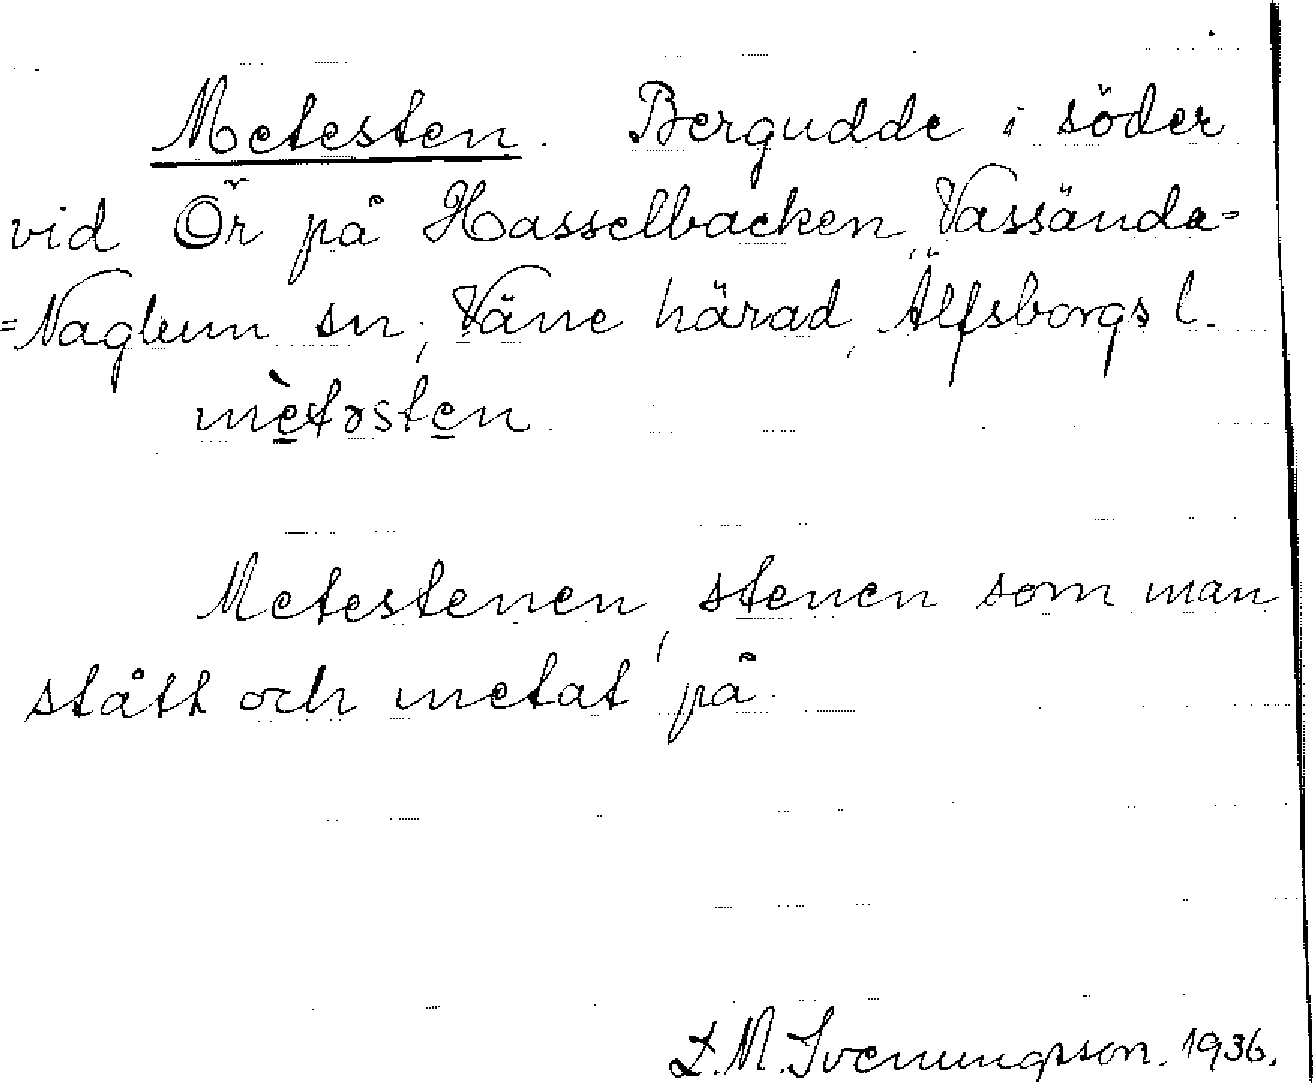 Metesten. Bergudde i söder
vid Ör på Hasselbacken, Vassända-
=Naglum sn, Väne härad, Älfsborgs l.
mètəsten
Metestenen, stenen som man
stått och metat på.
L.M. Svenungsson. 1936.